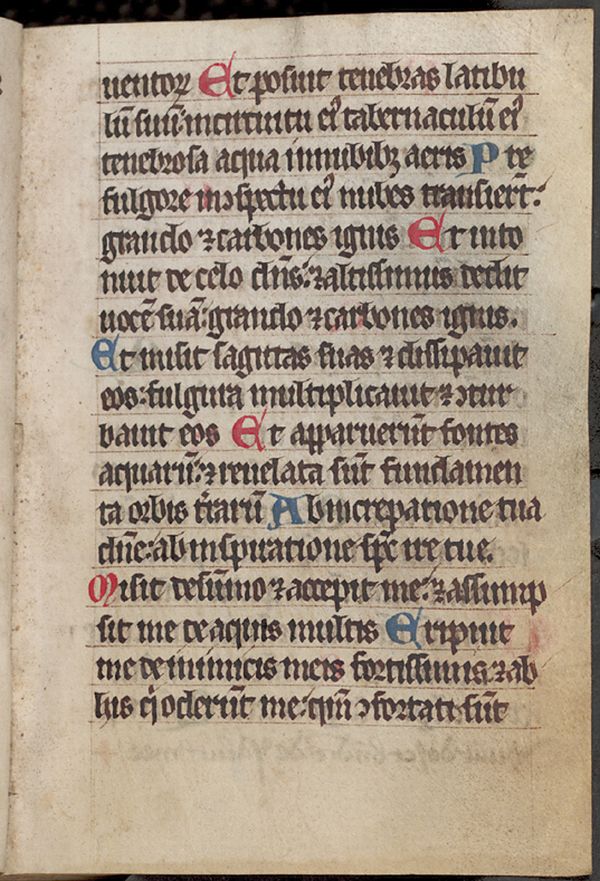 uentoꝝ Et posuit tenebras latibu
lū suū: in circuitu eiꝰ tabernaculū eiꝰ
tenebrosa aqua in nubibꝫ aeris Pre
fulgore in ꝯspectu eiꝰ nubes transierūt:
grando ⁊ carbones ignis Et into
nuit de celo dn̄s: ⁊ altissimus dedit
uocē suā: grando ⁊ carbones ignis.
Et misit sagittas suas ⁊ dissipauit
eos: fulgura multiplicauit ⁊ ꝯtur
bauit eos Et apparuerūt fontes
aquarū: ⁊ reuelata sūt fundamen
ta orbis t̄rarū Ab increpatione tua
dn̄e: ab inspiratione sp̄c ire tue.
Misit de sūmo ⁊ accepit me: ⁊ assump
sit me de aquis multis Eripuit
me de inimicis meis fortissimis: ⁊ ab
hijs q̇ oderūt me: qm̄ ꝯfortati sūt